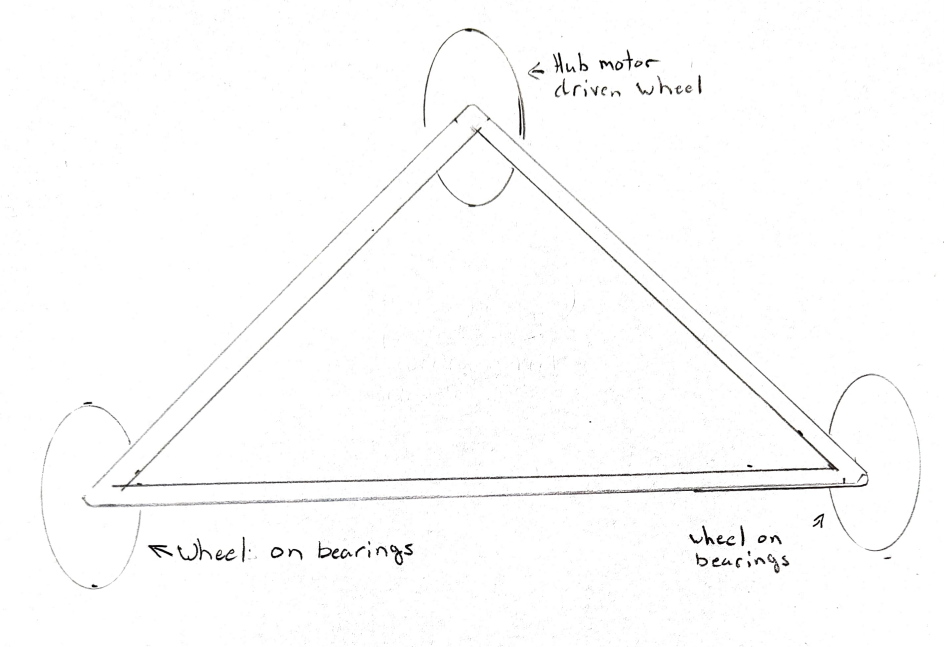 ← Hub motor
driven wheel
↖ Wheel on bearings
wheel on
bearings